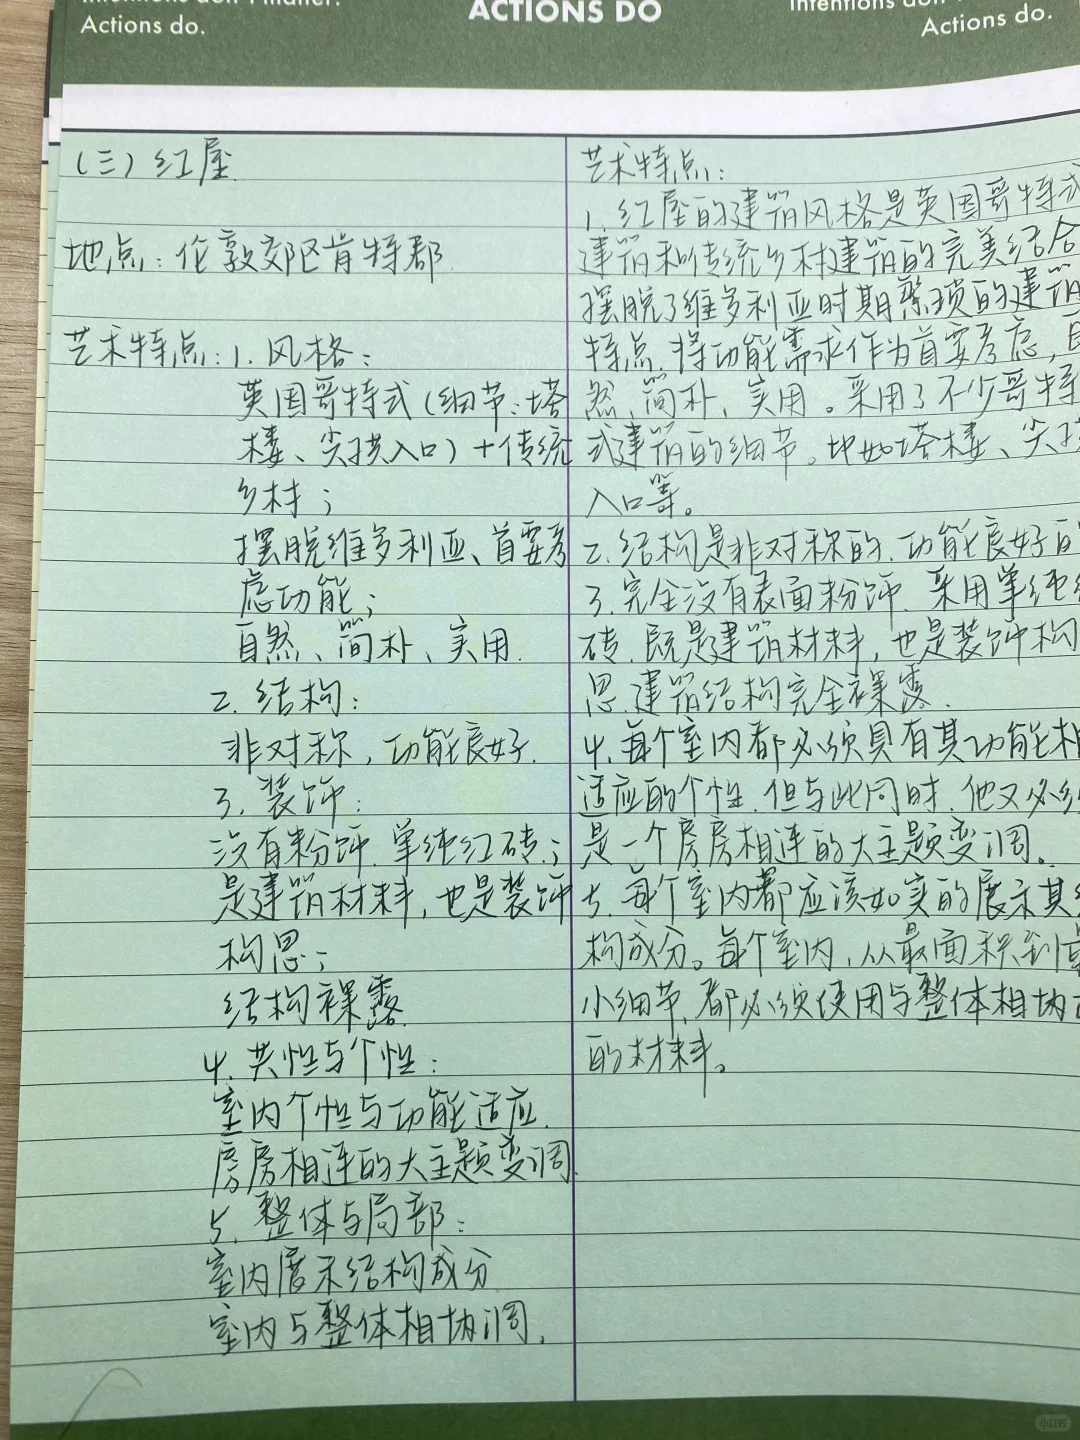 Actions do.
ACTIONS DO
Actions do.
(三)红屋
地点:伦敦郊区肯特郡
艺术特点:1.风格:
英国哥特式(细节:塔
楼、尖拱入口)+传统
乡村;
摆脱维多利亚、首要考
虑功能;
自然、简朴、实用.
2.结构:
非对称,功能良好.
3.装饰:
没有粉饰.单纯红砖;
是建筑材料,也是装饰
构思;
结构裸露.
4.共性与个性:
室内个性与功能适应.
房房相连的大主题变调.
5.整体与局部:
室内展示结构成分
室内与整体相协调.
艺术特点:
1.红屋的建筑风格是英国哥特式
建筑和传统乡村建筑的完美结合
摆脱了维多利亚时期繁琐的建筑
特点.将功能需求作为首要考虑,自
然、简朴、实用。采用了不少哥特
式建筑的细节。比如塔楼、尖拱
入口等。
2.结构是非对称的.功能良好
3.完全没有表面粉饰.采用单纯
砖.既是建筑材料,也是装饰构
思.建筑结构完全裸露.
4.每个室内都必须具有其功能相
适应的个性.但与此同时.他又必须
是一个房房相连的大主题变调.
5.每个室内都应该如实的展示其
构成分。每个室内,从最面积到
小细节,都必须使用与整体相协
的材料。
小红书